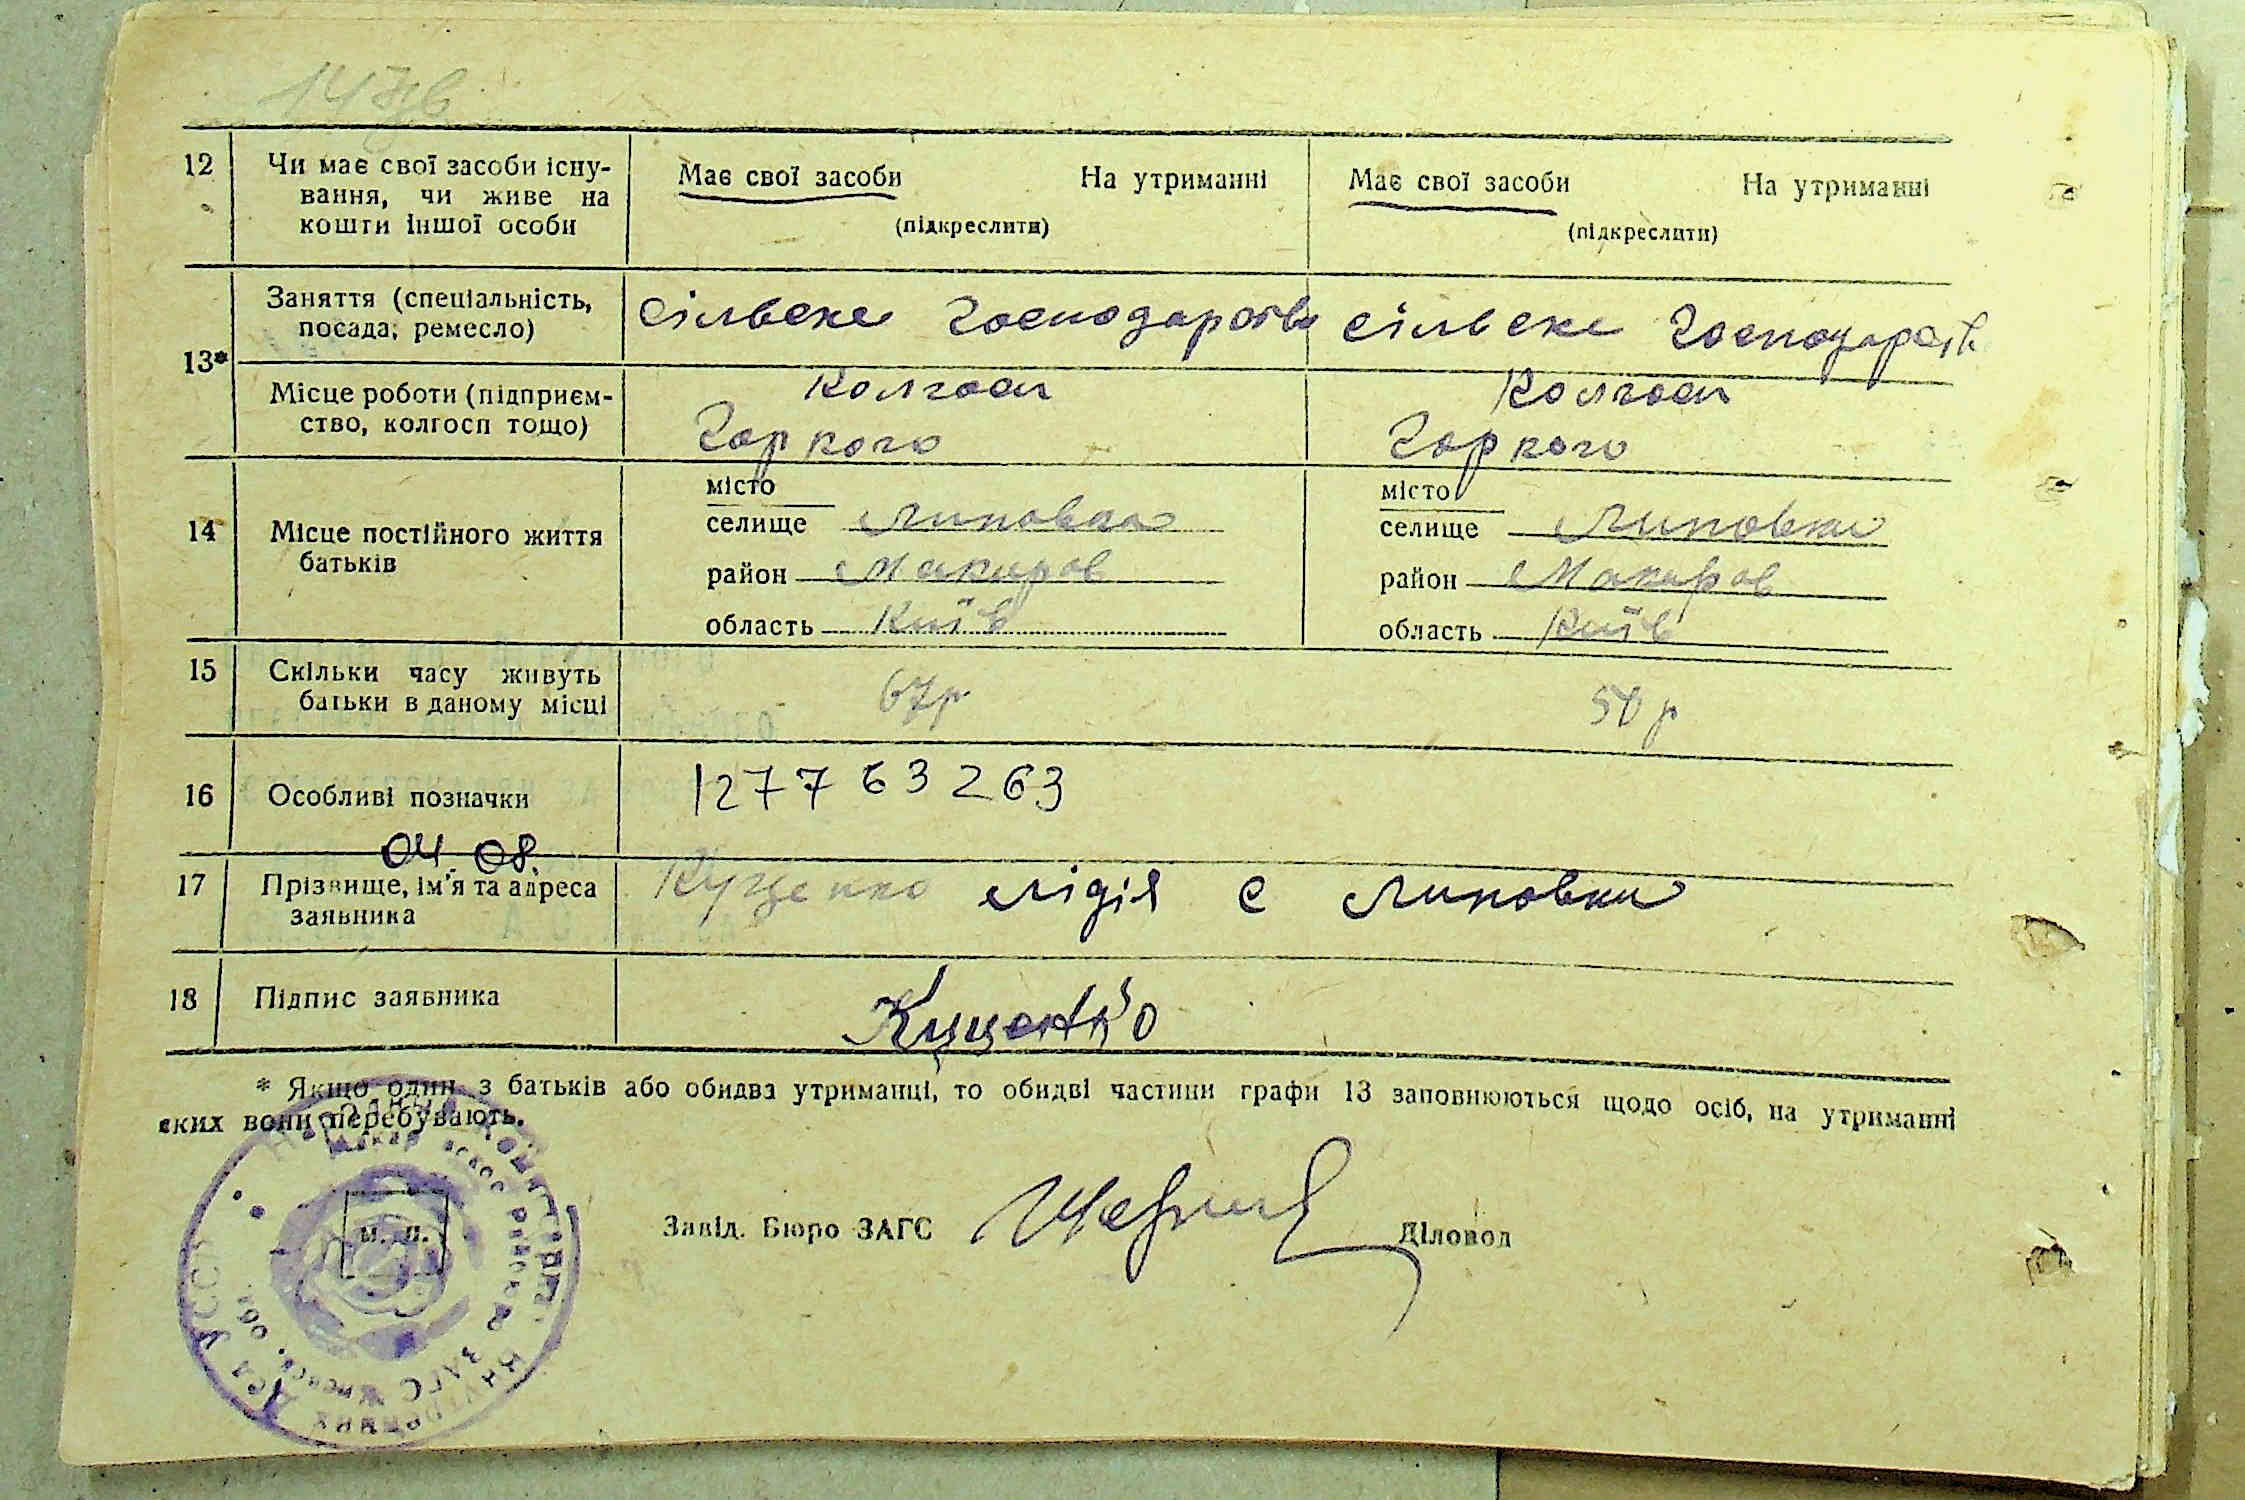 12 Чи має свої засоби існу-
вання, чи живе на
кошти іншої особи
Має свої засоби На утриманні
(підкреслити)
Має свої засоби На утриманні
(підкреслити)
13*
Заняття (спеціальність,
посада, ремесло)
сільске господарство
сільске господарств
Місце роботи (підприєм-
ство, колгосп тощо)
Колгосп
Горкого
Колгосп
Горкого
14 Місце постійного життя
батьків
місто
селище Липовка
район Макаров
область Київ
місто
селище Липовки
район Макаров
область Київ
15 Скільки часу живуть
батьки в даному місці
67р
50 р
16 Особливі позначки
127763263
04.08.
17 Прізвище, ім'я та адреса
заявника
Куценко Лідія с Липовки
18 Підпис заявника
Куценко
* Якщо один з батьків або обидва утриманці, то обидві частини графи 13 заповнюються щодо осіб, на утриманні
яких вони перебувають.
м. п.
Завід. Бюро ЗАГС
Діловод